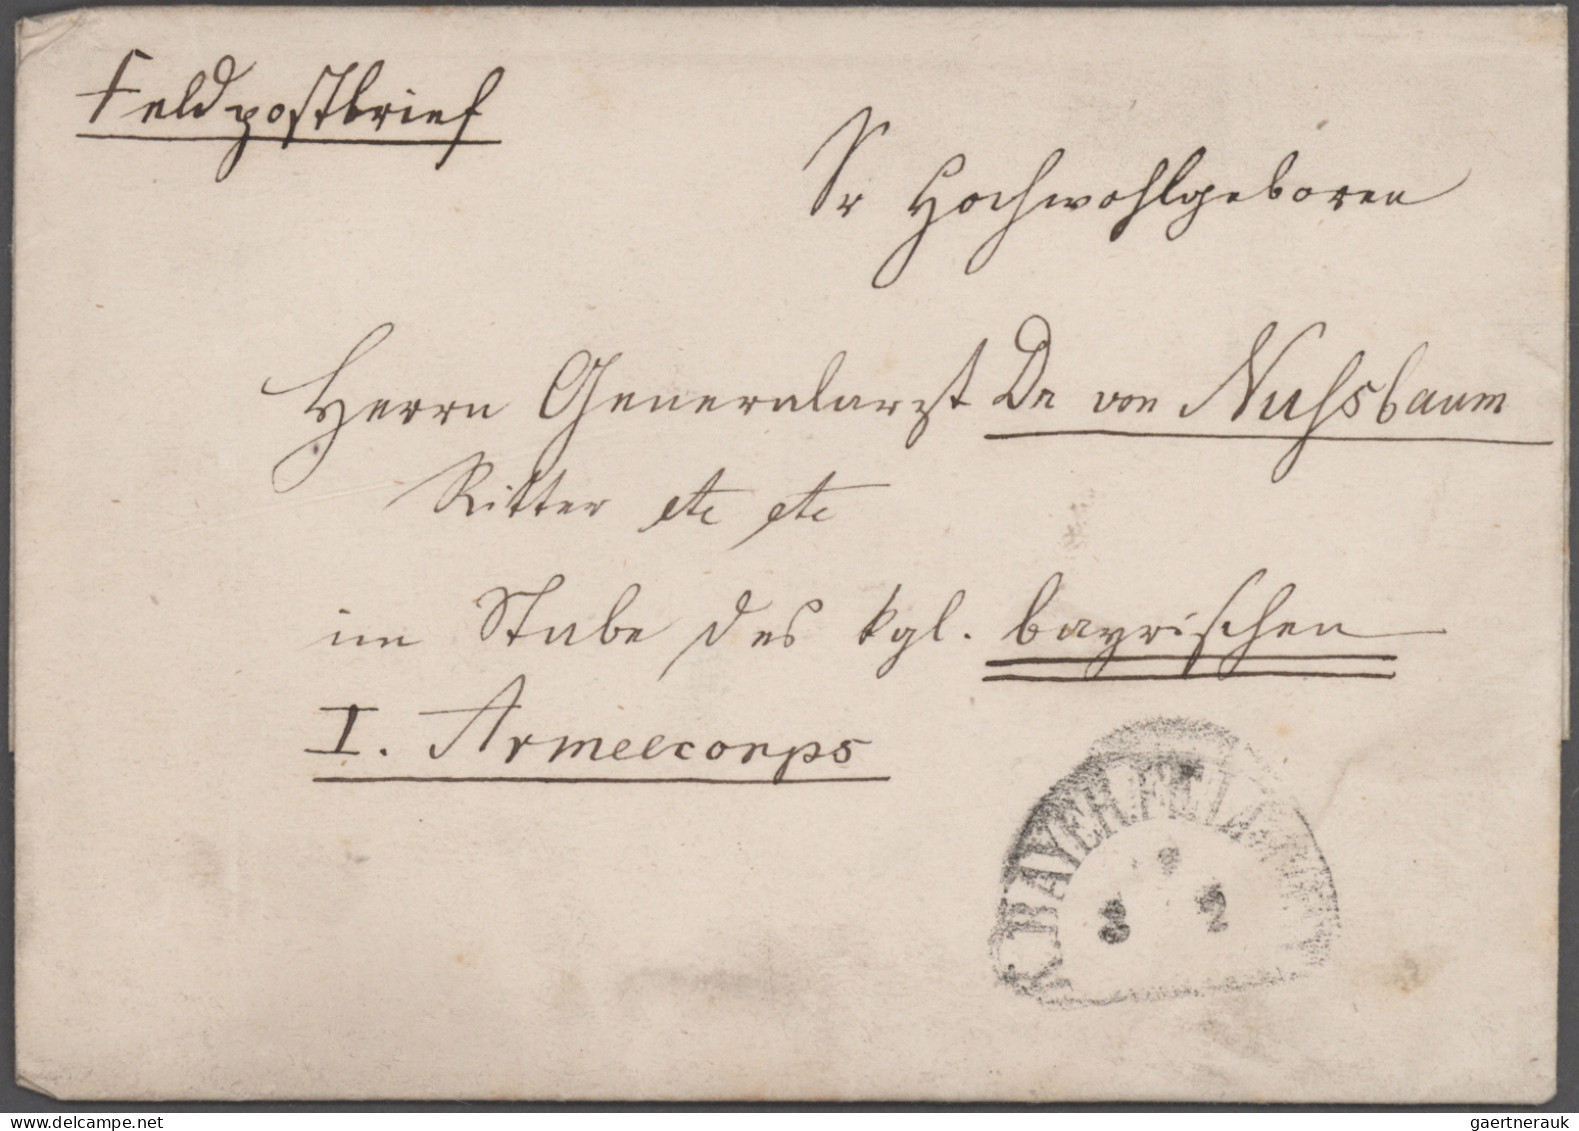 Feldpostbrief
Sr Hochwohlgeboren
Herrn Generalarzt Dr von Nußsbaum
Ritter etc etc
im Stabe des kgl. bayrischen
I. Armeecorps
K. BAYER. FELDP
3 2
gaertnerauk